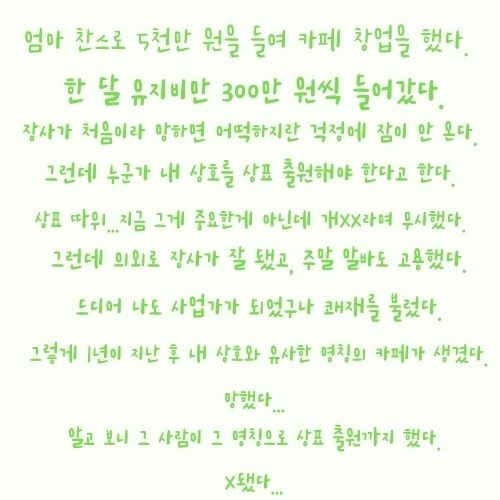 엄마 찬스로 5천만 원을 들여 카페 창업을 했다.
한 달 유지비만 300만 원씩 들어갔다.
장사가 처음이라 망하면 어떡하지란 걱정에 잠이 안 온다.
그런데 누군가 내 상호를 상표 출원해야 한다고 한다.
상표 따위...지금 그게 중요한게 아닌데 개XX라며 무시했다.
그런데 의외로 장사가 잘 됐고, 주말 알바도 고용했다.
드디어 나도 사업가가 되었구나 쾌재를 불렀다.
그렇게 1년이 지난 후 내 상호와 유사한 명칭의 카페가 생겼다.
망했다...
알고 보니 그 사람이 그 명칭으로 상표 출원까지 했다.
X됐다...